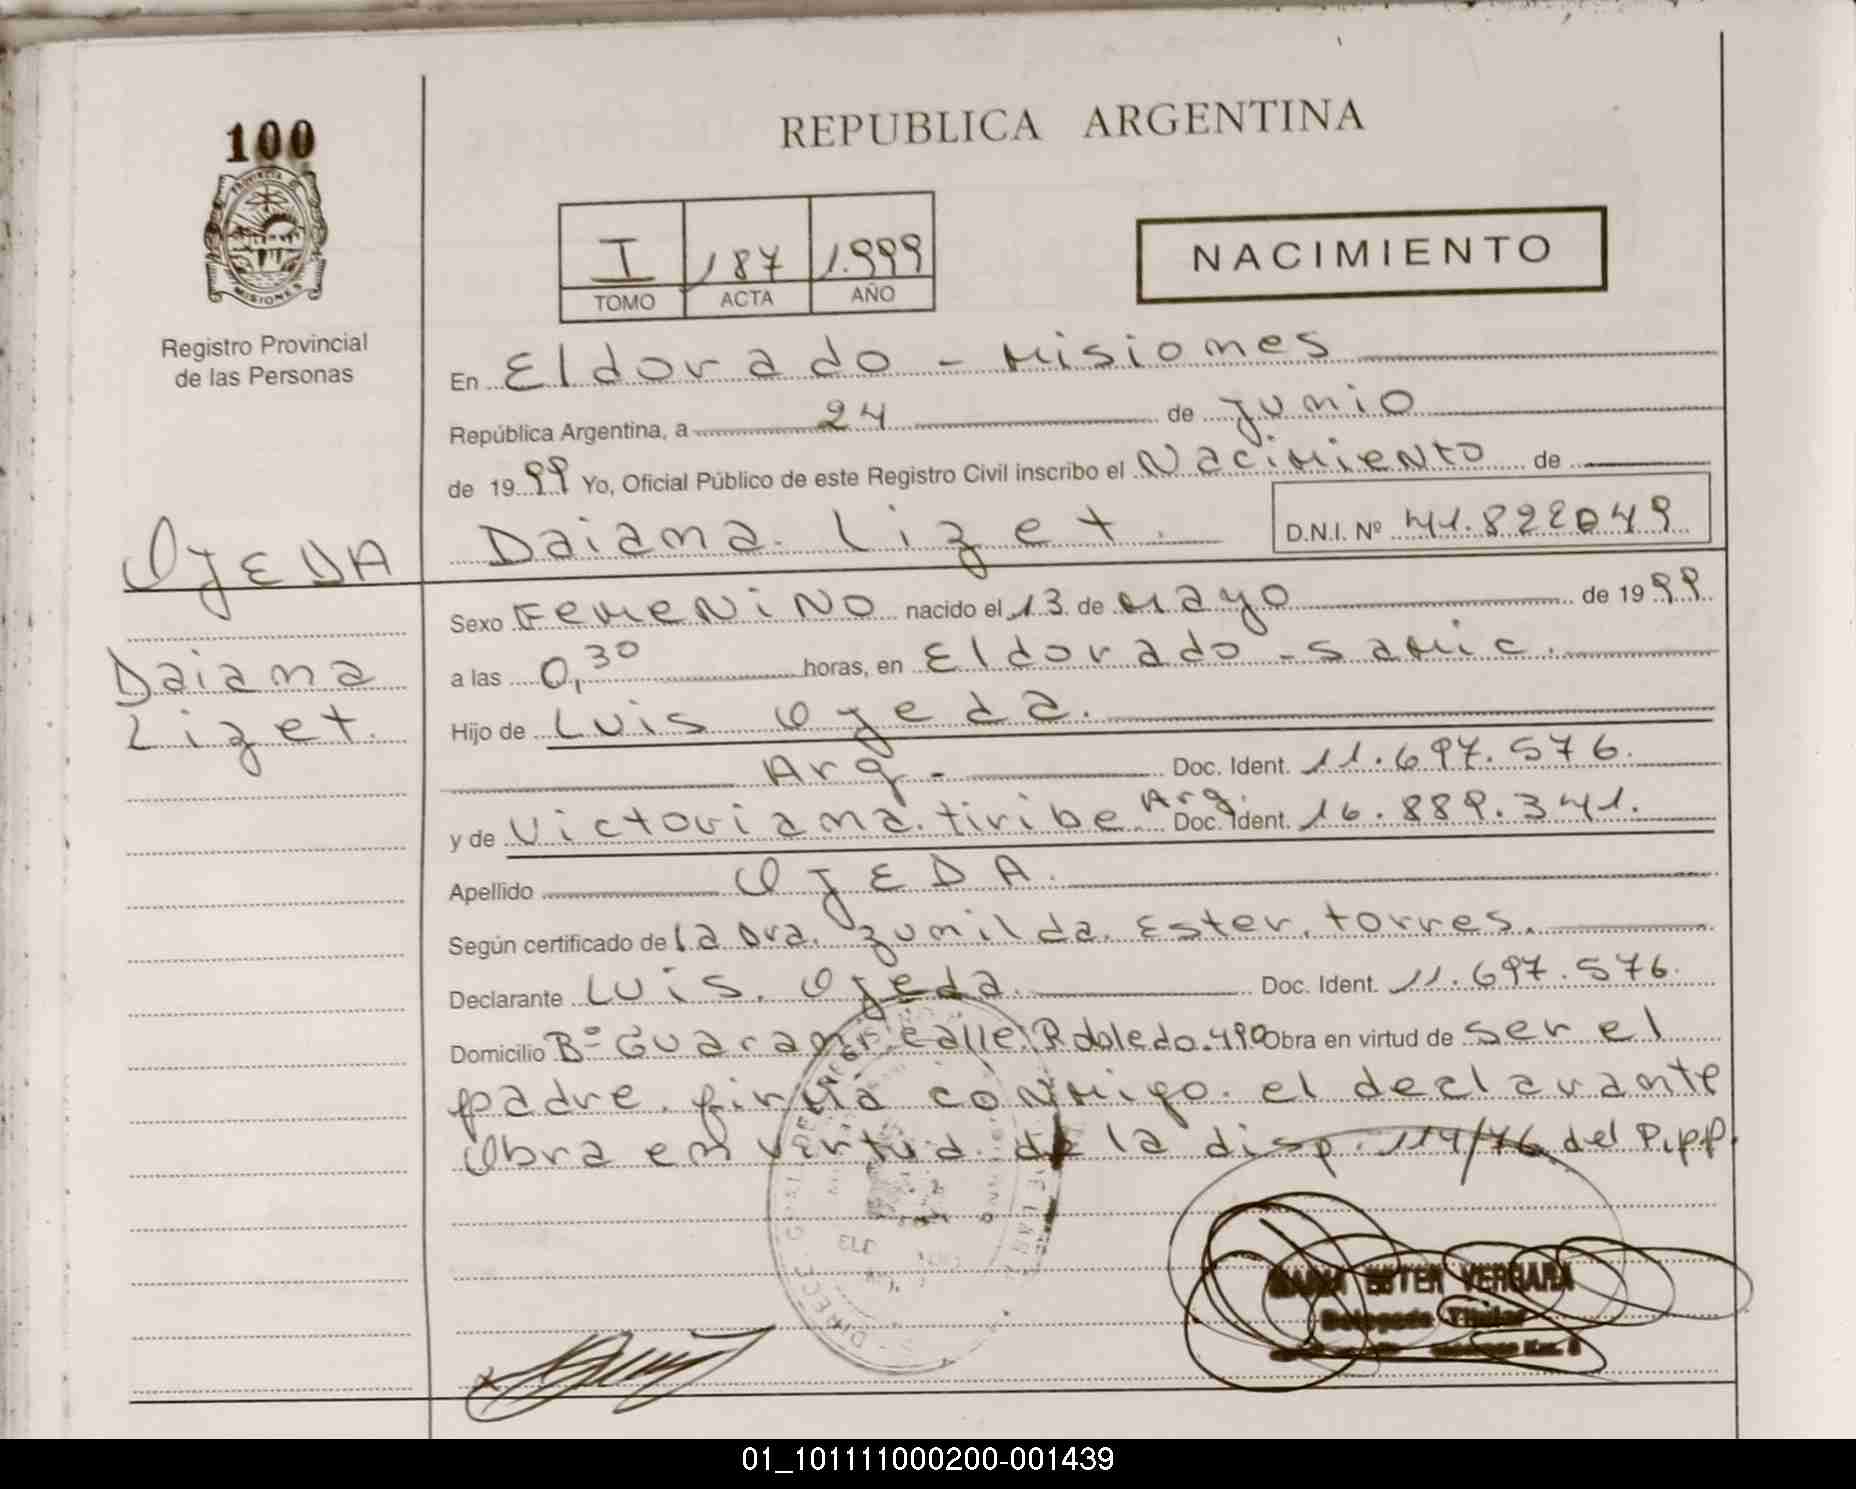 100
REPUBLICA ARGENTINA
PROVINCIA
MISIONES
I 187 1.999
TOMO ACTA AÑO
NACIMIENTO
Registro Provincial
de las Personas
En Eldorado - Misiones
República Argentina, a 24 de Junio
de 1999 Yo, Oficial Público de este Registro Civil inscribo el Nacimiento de
OJEDA
Daiana Lizet
Daiana. Lizet. D.N.I. Nº 41.822049
Sexo Femenino nacido el 13 de Mayo de 1999
a las 0,30 horas, en Eldorado - Samic.
Hijo de Luis Ojeda.
Arg - Doc. Ident. 11.697.576.
y de Victoriana. tiribe Arg. Doc. Ident. 16.889.341.
Apellido OJEDA.
Según certificado de la Dra. Zunilda. Ester. torres.
Declarante Luis. Ojeda. Doc. Ident. 11.697.576.
Domicilio Bº Guarani calle Robledo. 490 Obra en virtud de ser el
padre. firma conmigo. el declarante
Obra en virtud. de la disp. 114/76. del P.P.P.
ESTER VERGARA
Delegada Titular
01_101111000200-001439